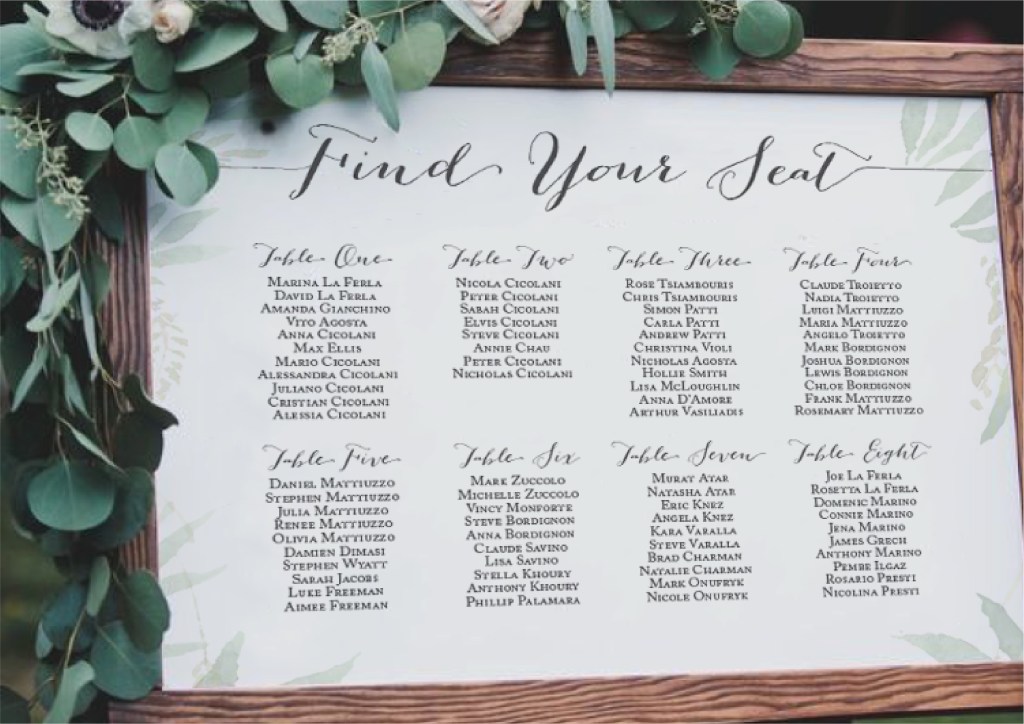 Find Your Seat
Table One
Marina La Ferla
David La Ferla
Amanda Gianchino
Vito Agosta
Anna Cicolani
Max Ellis
Mario Cicolani
Alessandra Cicolani
Juliano Cicolani
Cristian Cicolani
Alessia Cicolani
Table Two
Nicola Cicolani
Peter Cicolani
Sabah Cicolani
Elvis Cicolani
Steve Cicolani
Annie Chau
Peter Cicolani
Nicholas Cicolani
Table Three
Rose Tsiambouris
Chris Tsiambouris
Simon Patti
Carla Patti
Andrew Patti
Christina Violi
Nicholas Agosta
Hollie Smith
Lisa McLoughlin
Anna D'Amore
Arthur Vasiliadis
Table Four
Claude Troietto
Nadia Troietto
Luigi Mattiuzzo
Maria Mattiuzzo
Angelo Troietto
Mark Bordignon
Joshua Bordignon
Lewis Bordignon
Chloe Bordignon
Frank Mattiuzzo
Rosemary Mattiuzzo
Table Five
Daniel Mattiuzzo
Stephen Mattiuzzo
Julia Mattiuzzo
Renee Mattiuzzo
Olivia Mattiuzzo
Damien Dimasi
Stephen Wyatt
Sarah Jacobs
Luke Freeman
Aimee Freeman
Table Six
Mark Zuccolo
Michelle Zuccolo
Vincy Monforte
Steve Bordignon
Anna Bordignon
Claude Savino
Lisa Savino
Stella Khoury
Anthony Khoury
Phillip Palamara
Table Seven
Murat Atar
Natasha Atar
Eric Knez
Angela Knez
Kara Varalla
Steve Varalla
Brad Charman
Natalie Charman
Mark Onufryk
Nicole Onufryk
Table Eight
Joe La Ferla
Rosetta La Ferla
Domenic Marino
Connie Marino
Jena Marino
James Grech
Anthony Marino
Pembe Ilgaz
Rosario Presti
Nicolina Presti